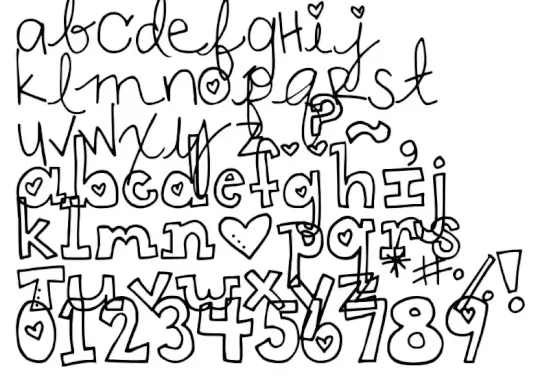 abcdefgHij
klmnopqRst
uvwxyz ? ~
abcdefghI,j
klmn♡pqrs
Tuvwxyz*#./:!
0123456789